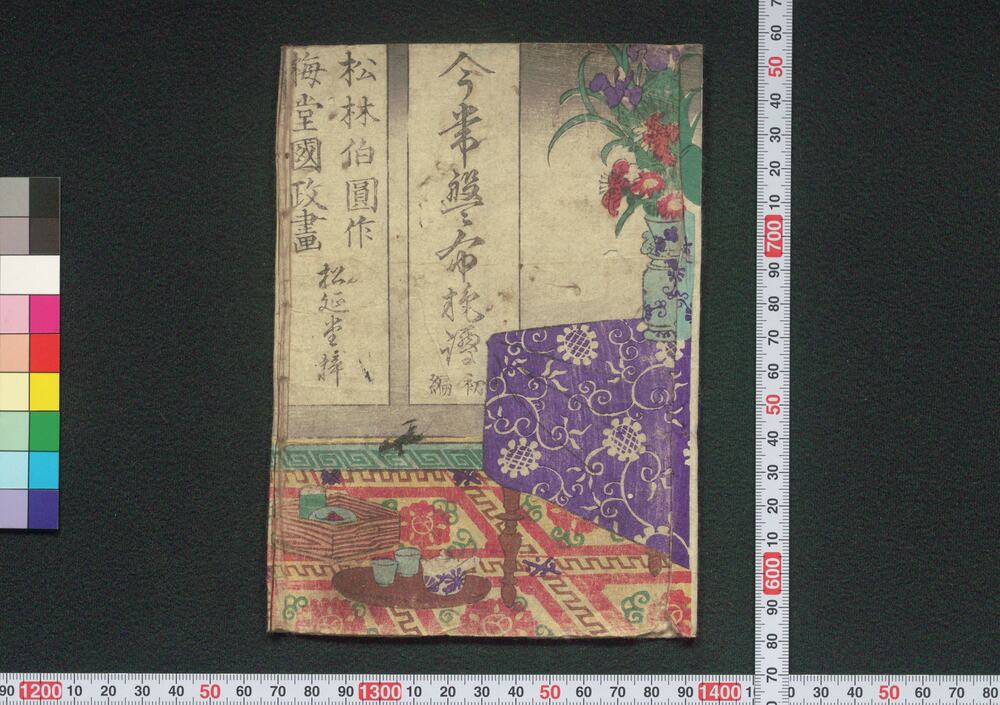 今常盤布施譚
初編
松林伯圓作
梅堂國政畫
松延堂梓
60 50 40 30 20 10 700 90 80 70 60 50 40 30 20 10 600 90 80 70
90 1200 10 20 30 40 50 60 70 80 90 1300 10 20 30 40 50 60 70 80 90 1400 1
30 40 50 60 70 80